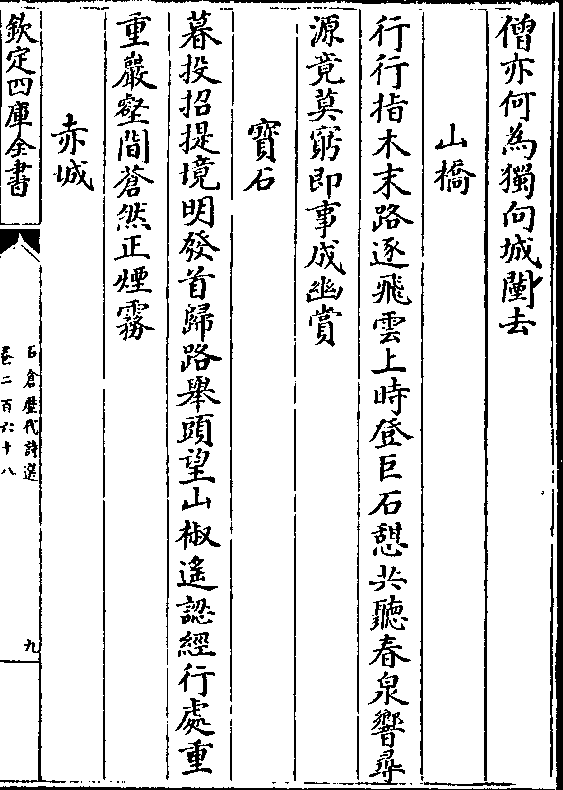 僧亦何為獨向城闉去
山橋
行行指木末路逐飛雲上時登巨石憇共聽春泉響尋
源竟莫窮即事成幽賞
寳石
暮投招提境明發首歸路舉頭望山椒遙認經行處重
重巖壑間蒼然正煙霧
赤城
欽定四庫全書
石倉歴代詩選
卷二百六十八
九